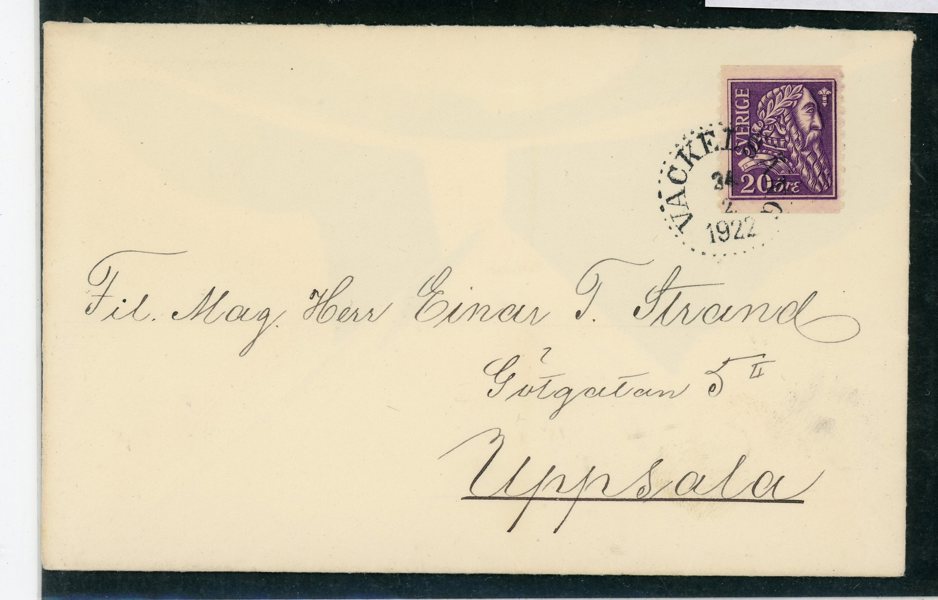 SVERIGE
20 ÖRE
VÄCKELSÅNG
24
2
1922
Fil. Mag. Herr Einar T. Strand
Götgatan 5 II
Uppsala